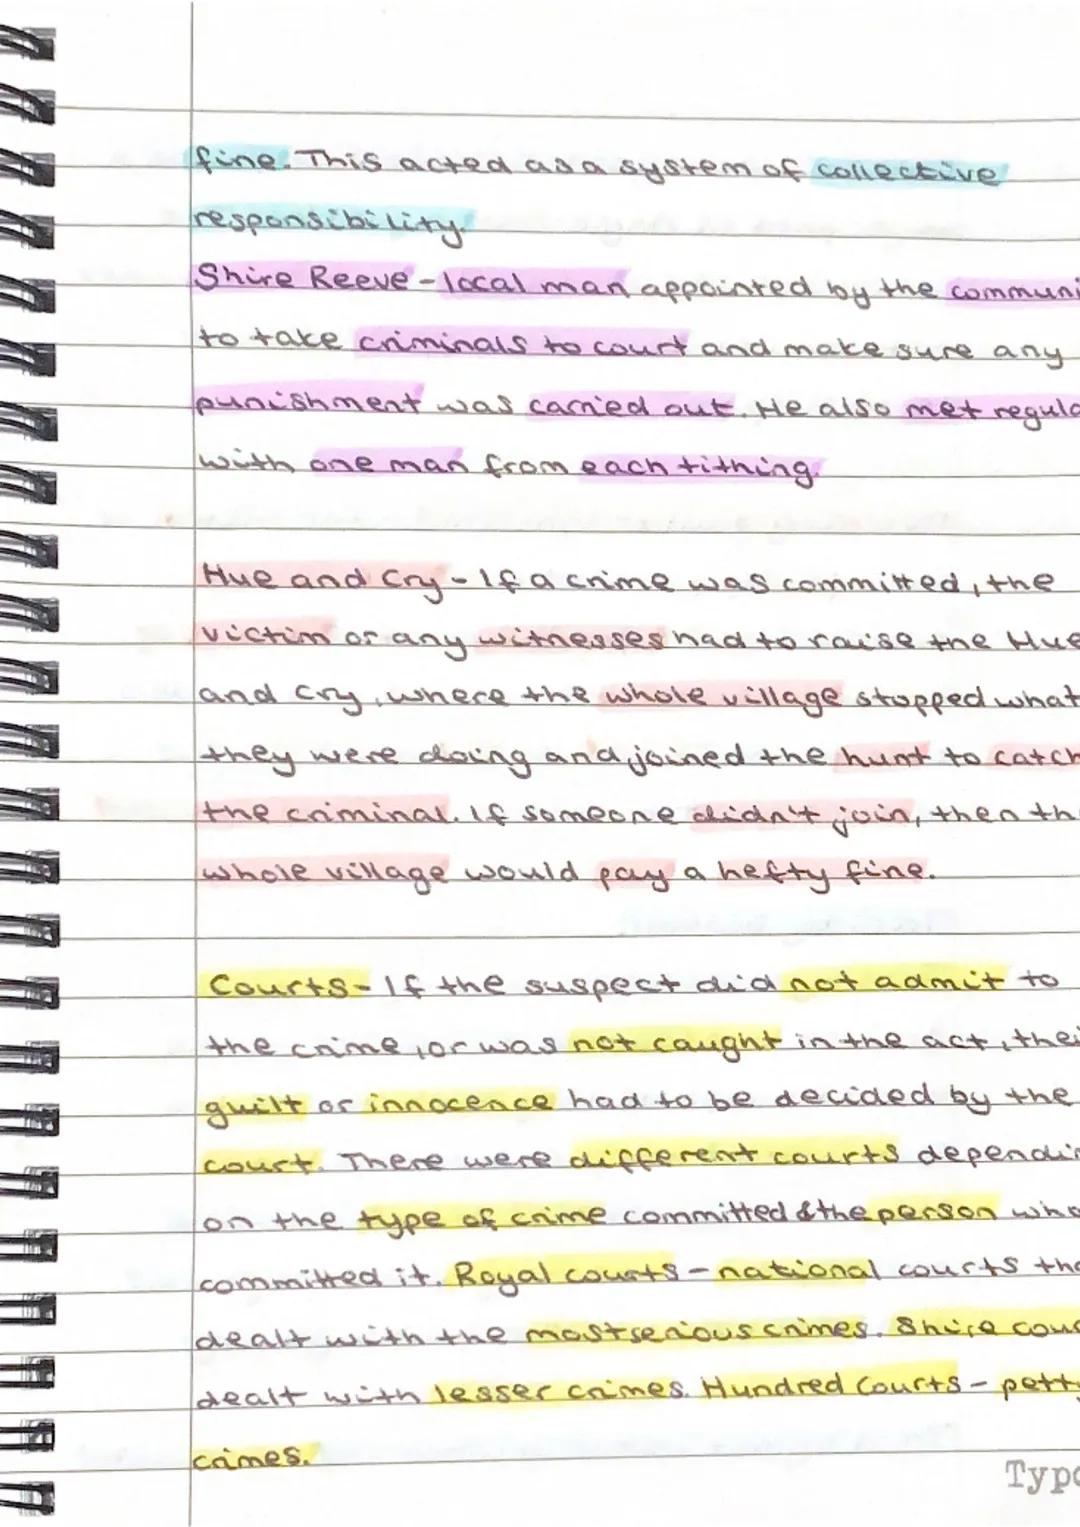 fine. This acted as a system of collective
responsibility.
Shire Reeve - local man appointed by the communi
to take criminals to court and make sure any
punishment was carried out. He also met regula
with one man from each tithing.
Hue and Cry - If a crime was committed, the
victim or any witnesses had to raise the Hue
and Cry, where the whole village stopped what
they were doing and joined the hunt to catch
the criminal. If someone didn't join, then th
whole village would pay a hefty fine.
Courts - If the suspect did not admit to
the crime, or was not caught in the act, thei
guilt or innocence had to be decided by the
court. There were different courts dependi
on the type of crime committed & the person who
committed it. Royal courts - national courts tha
dealt with the most serious crimes. Shire cour
dealt with lesser crimes. Hundred Courts - petty
crimes.
Typ